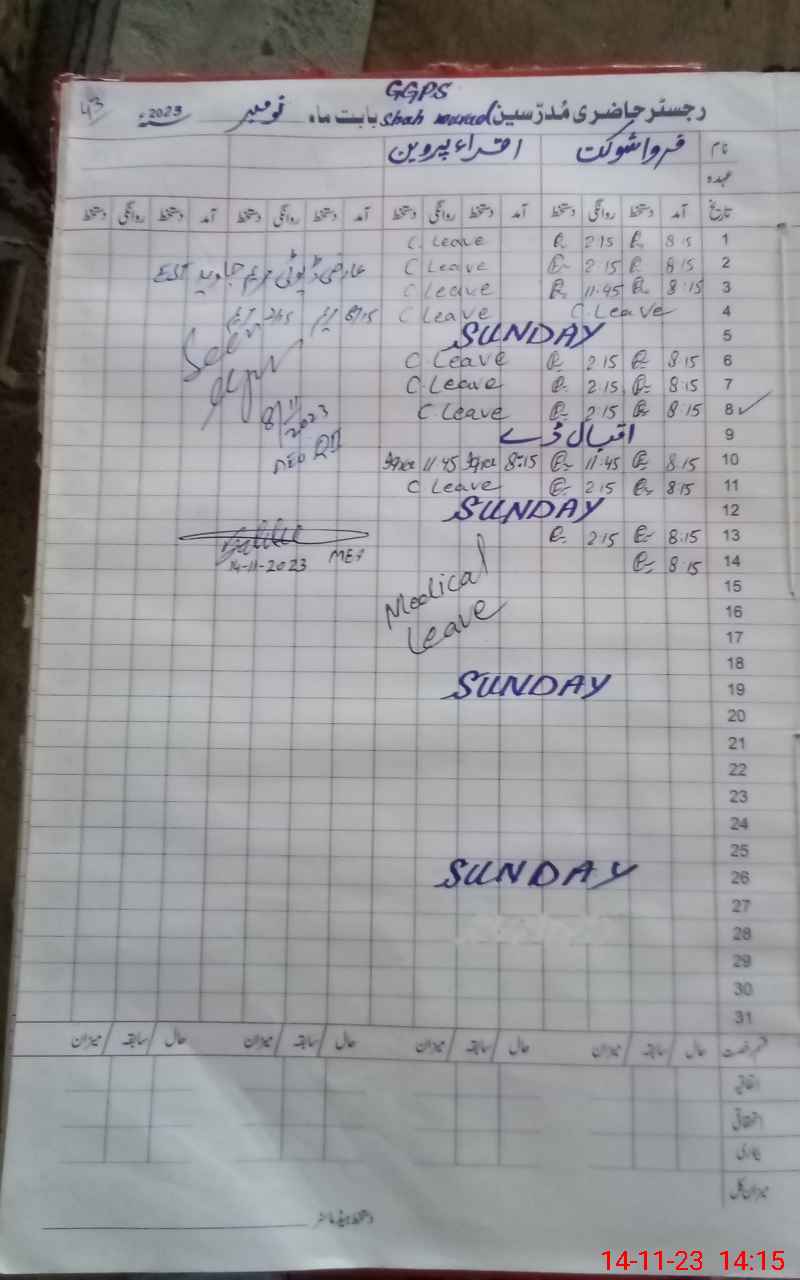 GGPS
43 2023ء نومبر رجسٹر حاضری مُدرّسین Shah murad بابت ماہ
نام فروا شوکت اقراء پروین
عہدہ
تاریخ آمد دستخط روانگی دستخط آمد دستخط روانگی دستخط آمد دستخط روانگی دستخط آمد دستخط روانگی دستخط
1 8:15 2:15 C. Leave
2 8:15 2:15 C Leave عارضی ڈیوٹی مریم جاوید EST
3 8:15 11:45 C Leave
4 C Leave C Leave 8:15 2:15
5 SUNDAY
6 8:15 2:15 C. Leave
7 8:15 2:15 C. Leave
8 8:15 2:15 C Leave
Seen
8/11/2023
9 اقبال ڈے
10 8:15 11:45 Iqra 8:15 Iqra 11:45
11 8:15 2:15 C Leave
12 SUNDAY
13 8:15 2:15
14 8:15
14-11-2023 MEA
Medical
Leave
15
16
17
18
19 SUNDAY
20
21
22
23
24
25
26 SUNDAY
27
28
29
30
31
قسم رخصت حال سابقہ میزان حال سابقہ میزان حال سابقہ میزان حال سابقہ میزان
اتفاقیہ
استحقاقی
بیماری
میزان کل
دستخط ہیڈ ماسٹر
14-11-23 14:15